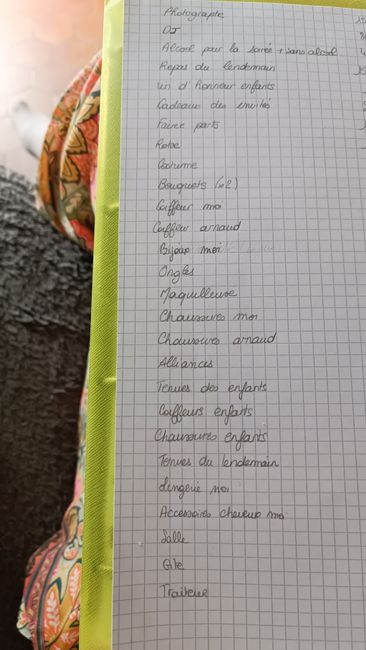 Photographe
DJ
Alcool pour la soirée + sans alcool
Repas du lendemain
vin d'honneur enfants
Cadeaux des invités
Faire parts
Robe
Costume
Bouquets (x2)
Coiffeur moi
Coiffeur arnaud
Bijoux moi
Ongles
Maquilleuse
Chaussures moi
Chaussures arnaud
Alliances
Tenues des enfants
Coiffeurs enfants
Chaussures enfants
Tenues du lendemain
Lingerie moi
Accessoires cheveux moi
Salle
Gîte
Traiteur